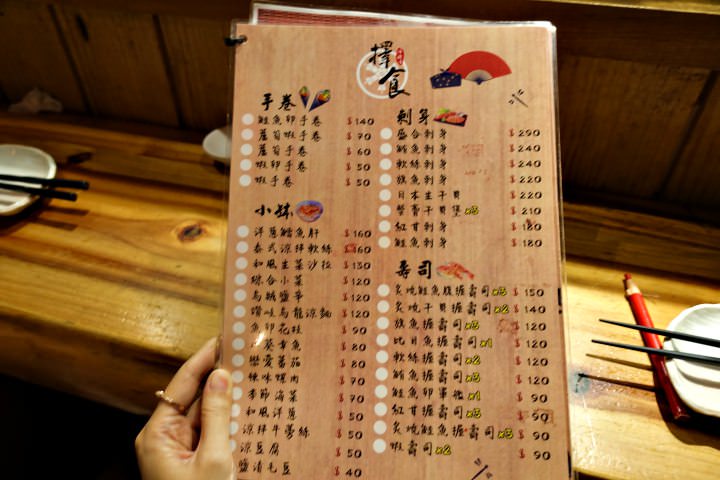 擇食
手卷
鮭魚卵手卷 $140
蘆筍蝦手卷 $70
蘆筍手卷 $60
蝦卵手卷 $50
蝦手卷 $50
小缽
洋蔥鱈魚肝 $160
泰式涼拌軟絲 $160
和風生菜沙拉 $130
綜合小菜 $120
烏魷鹽筆 $120
讚岐烏龍涼麵 $120
魚卵花枝 $90
山葵章魚 $80
樂愛蕃茄 $80
辣味螺肉 $70
季節海菜 $70
和風洋蔥 $50
涼拌牛蒡絲 $50
涼豆腐 $50
鹽漬毛豆 $40
刺身
盛合刺身 $290
鮪魚刺身 $240
軟絲刺身 $240
旗魚刺身 $220
日本生干貝 $220
蟹膏干貝煲x3 $210
紅甘刺身 $180
鮭魚刺身 $180
壽司
炙燒鮭魚腹握壽司x3 $150
炙燒干貝握壽司x2 $140
旗魚握壽司x3 $120
比目魚握壽司x1 $120
軟絲握壽司x2 $120
鮪魚握壽司x3 $120
鮭魚卵軍艦x1 $90
紅甘握壽司x3 $90
炙燒鮭魚握壽司x3 $90
蝦壽司x2 $90